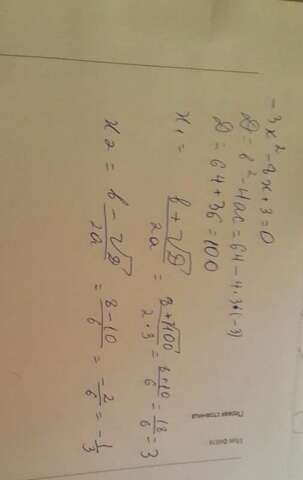 -3x² - 8x + 3 = 0
D = b² - 4ac = 64 - 4·3·(-3)
D = 64 + 36 = 100
x₁ = (b + √D)/2a = (8 + √100)/(2·3) = (8+10)/6 = 18/6 = 3
x₂ = (b - √D)/2a = (8 - 10)/6 = -2/6 = -1/3
Первая страница